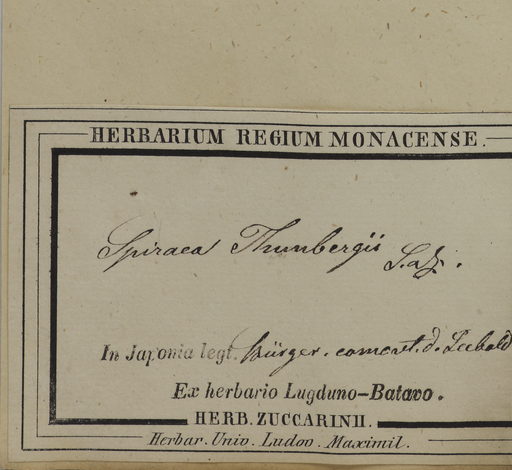 HERBARIUM REGIUM MONACENSE.
Spiraea Thunbergii S. a Z.
In Japonia legt. Bürger. comont. d. Siebold
Ex herbario Lugduno-Batavo.
HERB. ZUCCARINII.
Herbar. Univ. Ludov. Maximil.